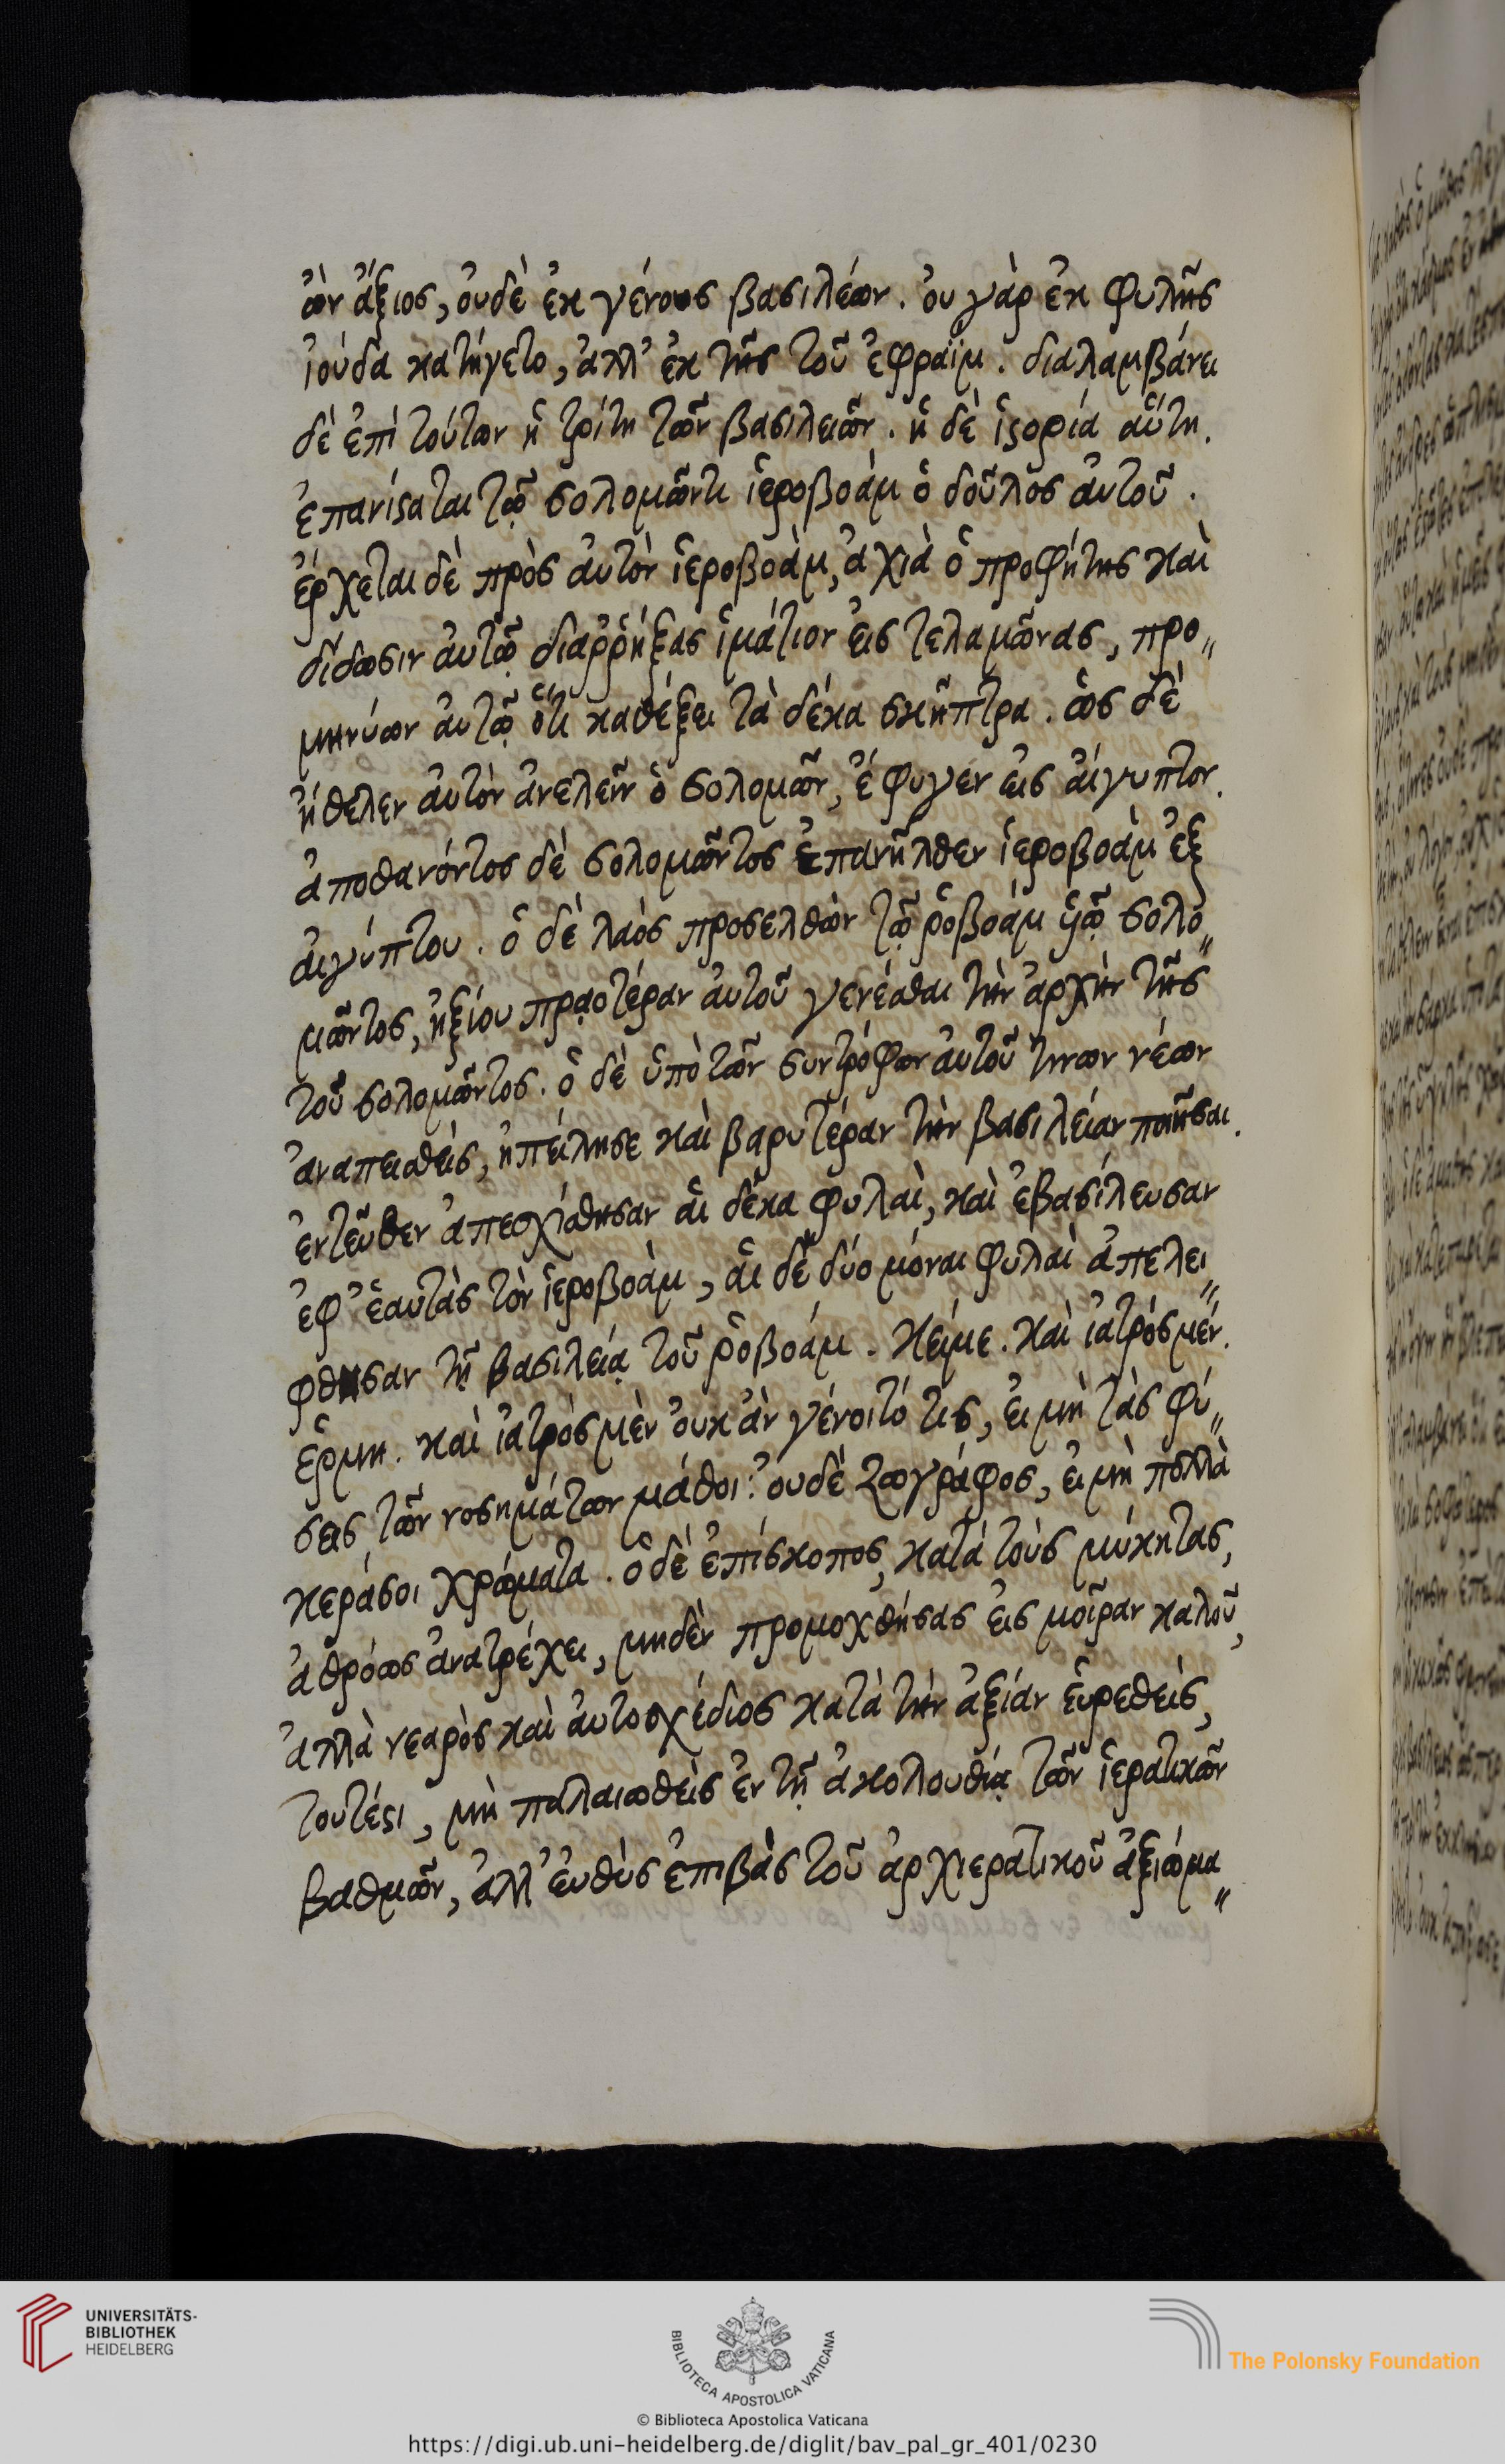 ὢν ἄξιος, οὐδὲ ἐκ γένους βασιλέων. οὐ γὰρ ἐκ φυλῆς
ἰούδα κατήγετο, ἀλλ' ἐκ τῆς τοῦ ἐφραΐμ. διαλαμβάνει
δὲ ἐπὶ τούτων ἡ τρίτη τῶν βασιλειῶν. ἡ δὲ ἱστορία αὕτη.
ἐπανίσταται τῷ σολομῶντι ἱεροβοὰμ ὁ δοῦλος αὐτοῦ.
ἔρχεται δὲ πρὸς αὐτὸν ἱεροβοὰμ, ἀχιὰ ὁ προφήτης καὶ
δίδωσιν αὐτῷ διαῤῥήξας ἱμάτιον εἰς τελαμῶνας, προ"
μηνύων αὐτῷ ὅτι καθέξει τὰ δέκα σκῆπτρα. ὡς δὲ
ἤθελεν αὐτὸν ἀνελεῖν ὁ σολομῶν, ἔφυγεν εἰς αἴγυπτον.
ἀποθανόντος δὲ σολομῶντος ἐπανῆλθεν ἱεροβοὰμ ἐξ
αἰγύπτου. ὁ δὲ λαὸς προσελθὼν τῷ ῥοβοάμ υἱῷ σολο"
μῶντος, ἠξίου πραοτέραν αὐτοῦ γενέσθαι τὴν ἀρχὴν τῆς
τοῦ σολομῶντος. ὁ δὲ ὑπὸ τῶν συντρόφων αὐτοῦ τινων νέων
ἀναπεισθεὶς, ἠπείλησε καὶ βαρυτέραν τὴν βασιλείαν ποιῆσαι.
ἐντεῦθεν ἀπεσχίσθησαν αἱ δέκα φυλαὶ, καὶ ἐβασίλευσαν
ἐφ' ἑαυτὰς τὸν ἱεροβοὰμ, αἱ δὲ δύο μόναι φυλαὶ ἀπελεί"
φθησαν τῇ βασιλείᾳ τοῦ ῥοβοάμ. κείμε. καὶ ἰατρός μέν.
ἑρμη. καὶ ἰατρὸς μὲν οὐκ ἂν γένοιτό τις, εἰ μὴ τὰς φύ"
σεις τῶν νοσημάτων μάθοι: οὐδὲ ζωγράφος, εἰ μὴ πολλὰ
κεράσοι χρώματα. ὁ δὲ ἐπίσκοπος, κατὰ τοὺς μύκητας,
ἀθρόως ἀνατρέχει, μηδὲν προμοχθήσας εἰς μοῖραν καλοῦ,
ἀλλὰ νεαρὸς καὶ αὐτοσχέδιος κατὰ τὴν ἀξίαν εὑρεθεὶς,
τουτέστι, μὴ παλαιωθεὶς ἐν τῇ ἀκολουθίᾳ τῶν ἱερατικῶν
βαθμῶν, ἀλλ' εὐθὺς ἐπιβὰς τοῦ ἀρχιερατικοῦ ἀξιώμα"
UNIVERSITÄTS-
BIBLIOTHEK
HEIDELBERG
BIBLIOTECA APOSTOLICA VATICANA
The Polonsky Foundation
© Biblioteca Apostolica Vaticana
https://digi.ub.uni-heidelberg.de/diglit/bav_pal_gr_401/0230